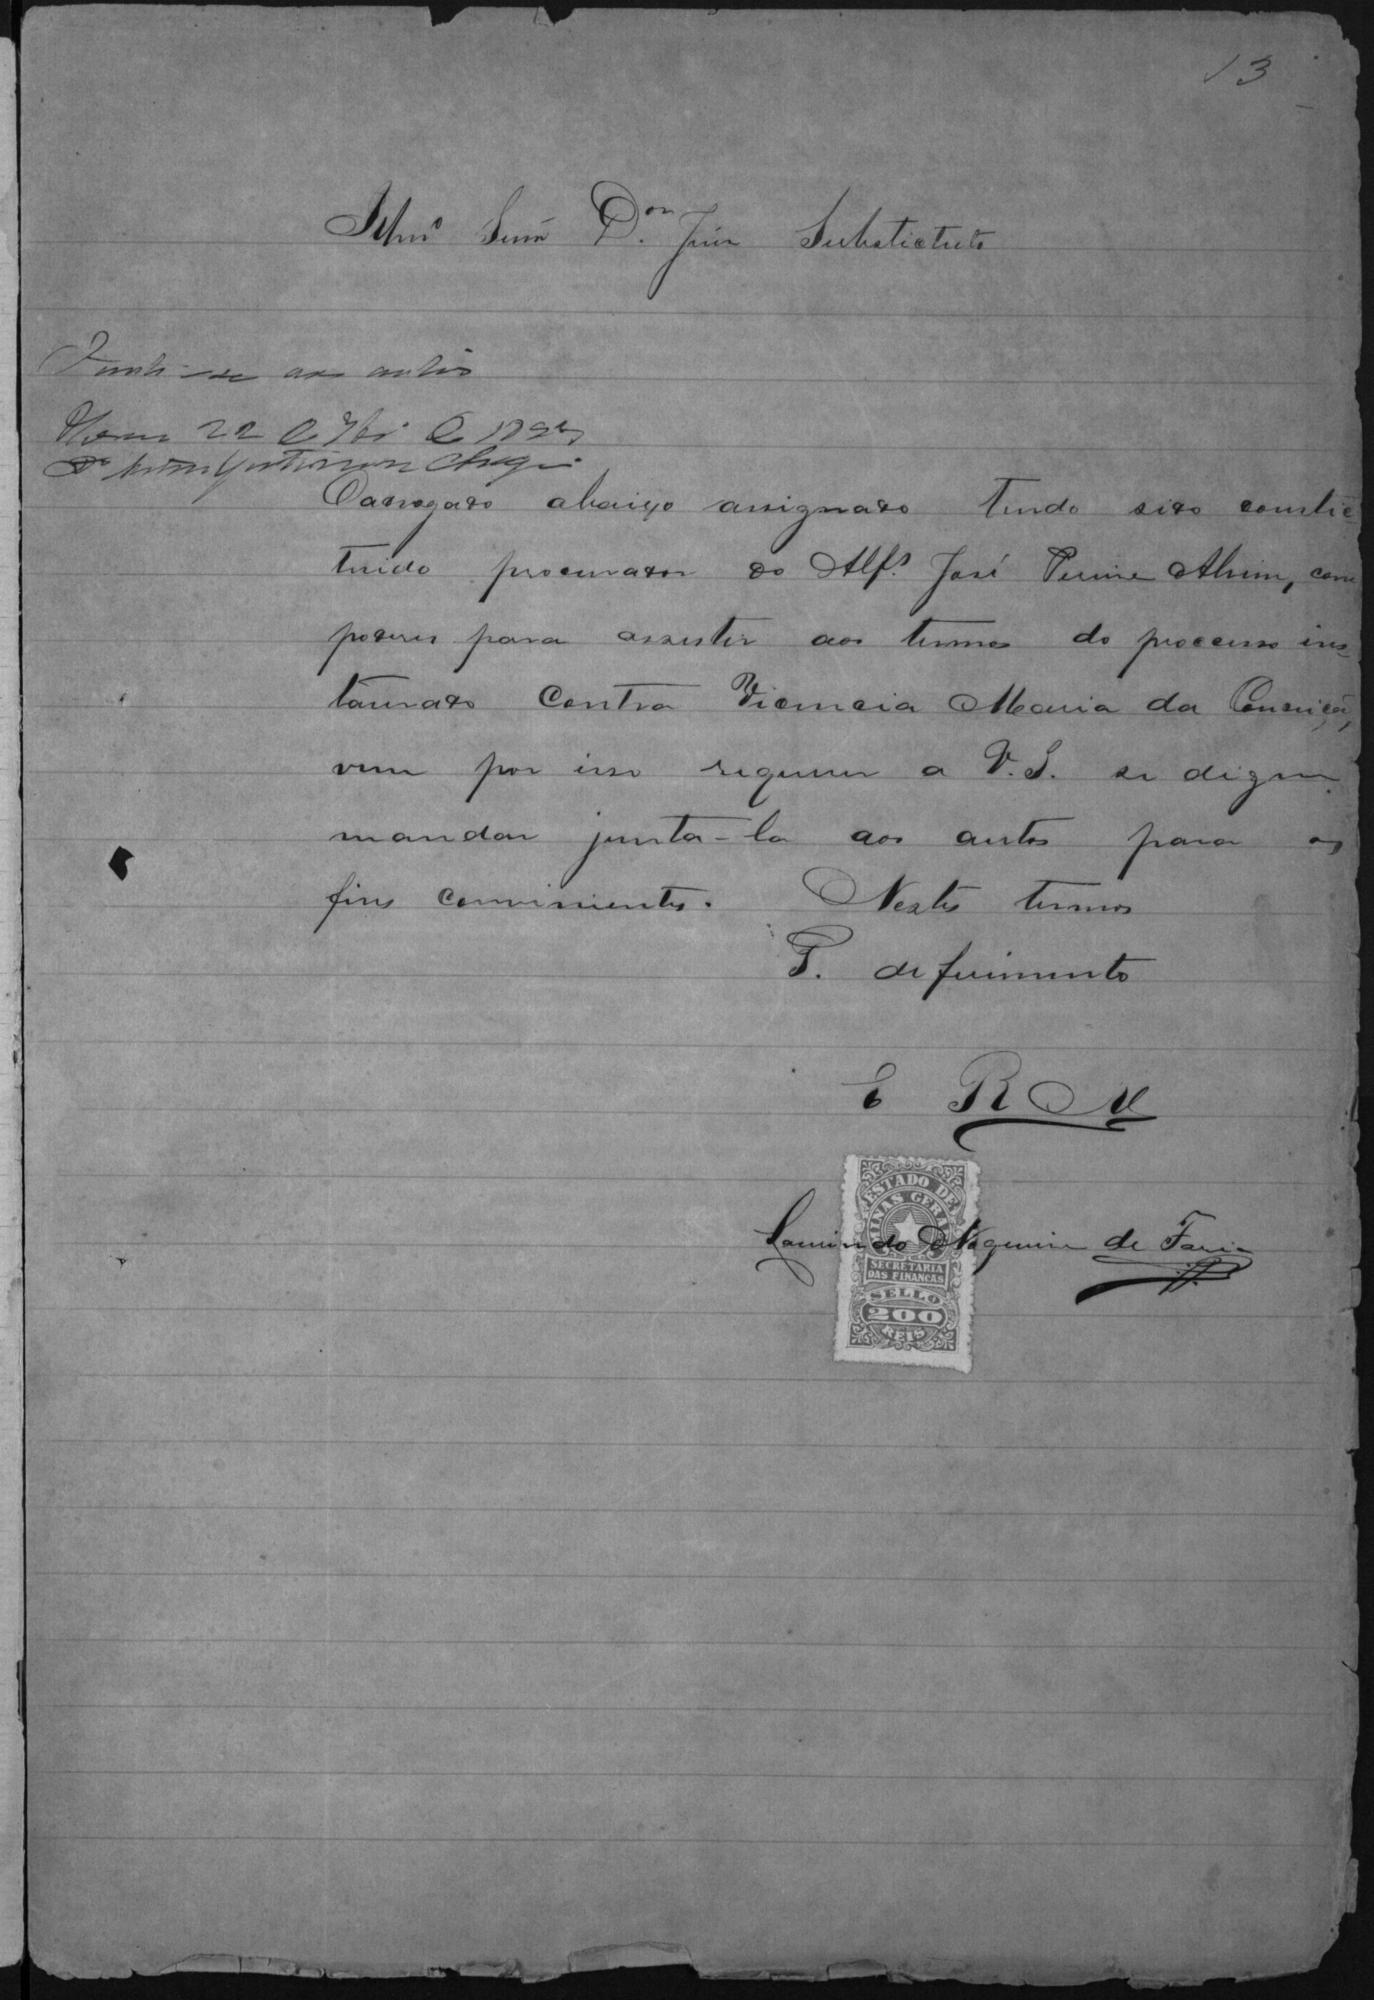 13
Illmº Senr Dor Juiz Substictuto
Junte-se aos autos
22 de de 189
Oadvogado abaixo assignado tendo sido constic-
tuido procurador do Alfs José Alvim, com
poderes para assistir aos termos do processo ins-
taurado contra Vicencia Maria da Conceição,
vem por isso requerer a V.S. se digne
mandar junta-la aos autos para os
fins convinientes. Nestes termos
P. deferimento
E R M
ESTADO DE
MINAS GERAES
SECRETARIA
DAS FINANÇAS
SELLO
200
REIS
Laurindo Nogueira de Faria